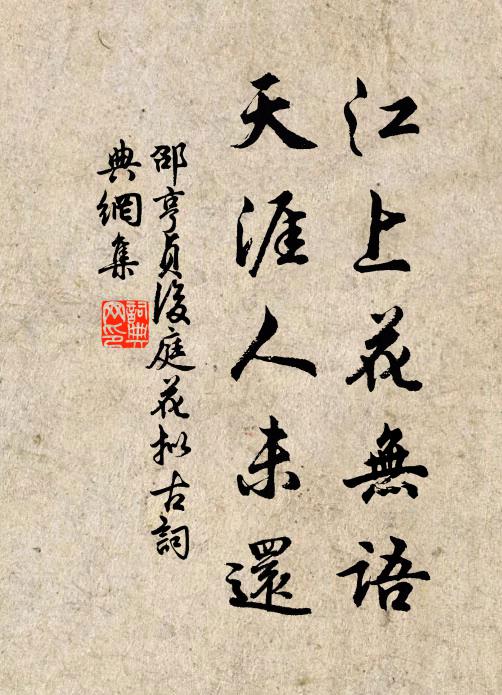 江上花無語
天涯人未還
邵亨貞後庭花拟古詞
典網集
詞典网印